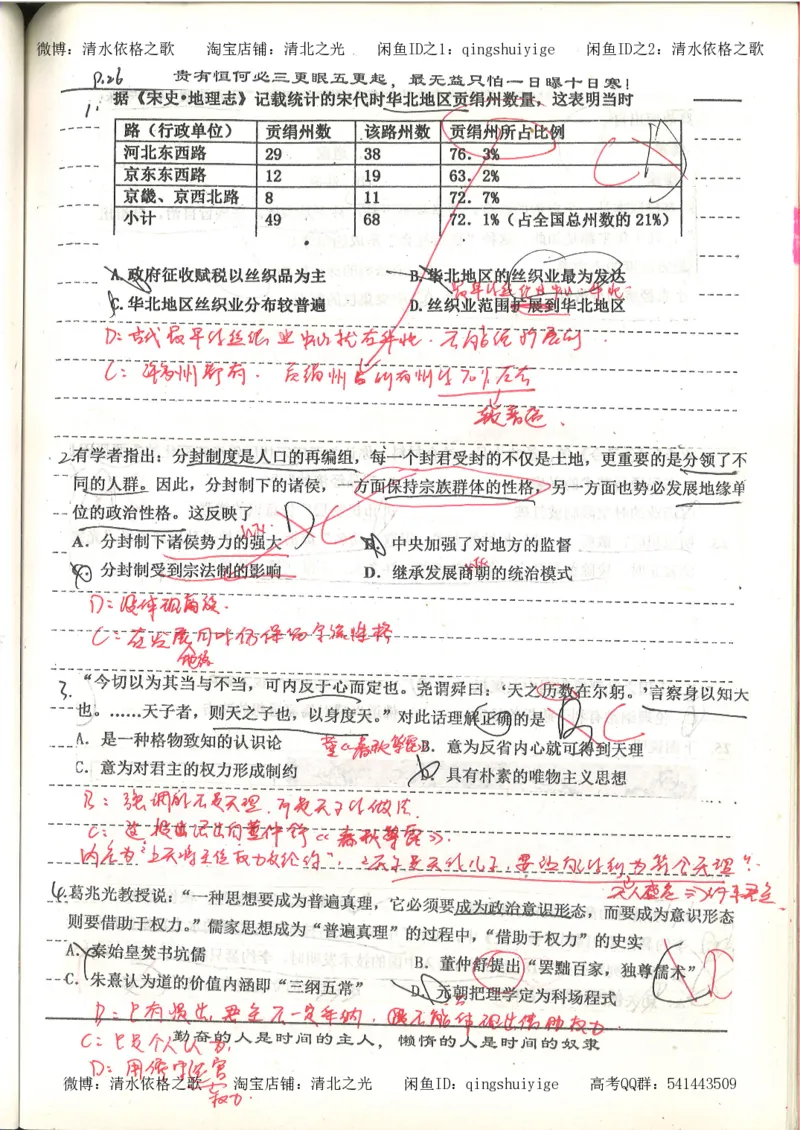 微博：清水依格之歌　淘宝店铺：清北之光　闲鱼ID之1：qingshuiyige　闲鱼ID之2：清水依格之歌
P.26 贵有恒何必三更眠五更起，最无益只怕一日曝十日寒！
1. 据《宋史·地理志》记载统计的宋代时华北地区贡绢州数量，这表明当时
路（行政单位） 贡绢州数 该路州数 贡绢州所占比例
河北东西路 29 38 76．3%
京东东西路 12 19 63．2%
京畿、京西北路 8 11 72．7%
小计 49 68 72．1%（占全国总州数的21%）
D C
A.政府征收赋税以丝织品为主 B.华北地区的丝织业最为发达
C.华北地区丝织业分布较普遍 D.丝织业范围扩展到华北地区
D：古代最早的丝织业出现就在华北．不能说扩展到．
较普遍．
2.有学者指出：分封制度是人口的再编组，每一个封君受封的不仅是土地，更重要的是分领了不
同的人群。因此，分封制下的诸侯，一方面保持宗族群体的性格，另一方面也势必发展地缘单
位的政治性格。这反映了 D C
A．分封制下诸侯势力的强大 B．中央加强了对地方的监督
C．分封制受到宗法制的影响 D．继承发展商朝的统治模式
D：没体现商波．
C：在发展同时仍保留宗族性格
3.“今切以为其当与不当，可内反于心而定也。尧谓舜曰：‘天之历数在尔躬。’言察身以知天
也。……天子者，则天之子也，以身度天。”对此话理解正确的是 D C
A．是一种格物致知的认识论 B．意为反省内心就可得到天理
董《春秋繁露》
C．意为对君主的权力形成制约 D．具有朴素的唯物主义思想
B：强调的不是天理．而是天子的做法．
C：这段出自董仲舒《春秋繁露》．
4.葛兆光教授说：“一种思想要成为普遍真理，它必须要成为政治意识形态，而要成为意识形态
则要借助于权力。”儒家思想成为“普遍真理”的过程中，“借助于权力”的史实
A．秦始皇焚书坑儒 B．董仲舒提出“罢黜百家，独尊儒术”
C．朱熹认为道的价值内涵即“三纲五常” D．元朝把理学定为科场程式
B：只有提出，君主不一定采纳．
勤奋的人是时间的主人，懒惰的人是时间的奴隶
C：只是个人认为．
权力．
微博：清水依格之歌　淘宝店铺：清北之光　闲鱼ID：qingshuiyige　高考QQ群：541443509